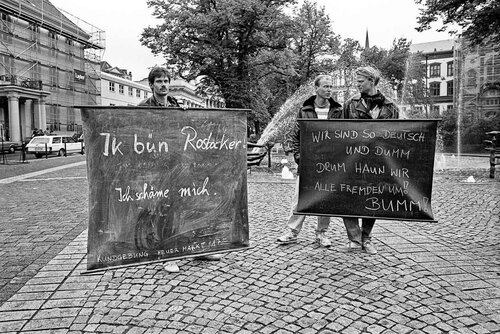 Ik bün Rostocker.
Ich schäme mich.
KUNDGEBUNG NEUER MARKT 17.00
WIR SIND SO DEUTSCH
UND DUMM
DRUM HAUN WIR
ALLE FREMDEN UM!
BUMM!